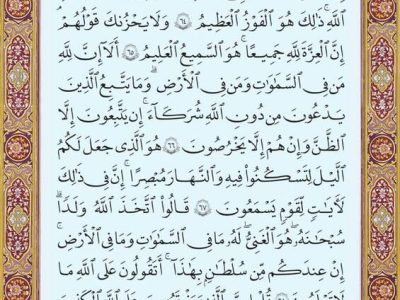 ٱللَّهِ ۚ ذَٰلِكَ هُوَ ٱلْفَوْزُ ٱلْعَظِيمُ ٦٤ وَلَا يَحْزُنكَ قَوْلُهُمْ ۘ
إِنَّ ٱلْعِزَّةَ لِلَّهِ جَمِيعًا ۚ هُوَ ٱلسَّمِيعُ ٱلْعَلِيمُ ٦٥ أَلَآ إِنَّ لِلَّهِ
مَن فِى ٱلسَّمَٰوَٰتِ وَمَن فِى ٱلْأَرْضِ ۗ وَمَا يَتَّبِعُ ٱلَّذِينَ
يَدْعُونَ مِن دُونِ ٱللَّهِ شُرَكَآءَ ۚ إِن يَتَّبِعُونَ إِلَّا
ٱلظَّنَّ وَإِنْ هُمْ إِلَّا يَخْرُصُونَ ٦٦ هُوَ ٱلَّذِى جَعَلَ لَكُمُ
ٱلَّيْلَ لِتَسْكُنُوا۟ فِيهِ وَٱلنَّهَارَ مُبْصِرًا ۚ إِنَّ فِى ذَٰلِكَ
لَءَايَٰتٍ لِّقَوْمٍ يَسْمَعُونَ ٦٧ قَالُوا۟ ٱتَّخَذَ ٱللَّهُ وَلَدًا ۗ
سُبْحَٰنَهُۥ ۖ هُوَ ٱلْغَنِىُّ ۖ لَهُۥ مَا فِى ٱلسَّمَٰوَٰتِ وَمَا فِى ٱلْأَرْضِ ۚ
إِنْ عِندَكُم مِّن سُلْطَٰنٍۭ بِهَٰذَآ ۚ أَتَقُولُونَ عَلَى ٱللَّهِ مَا